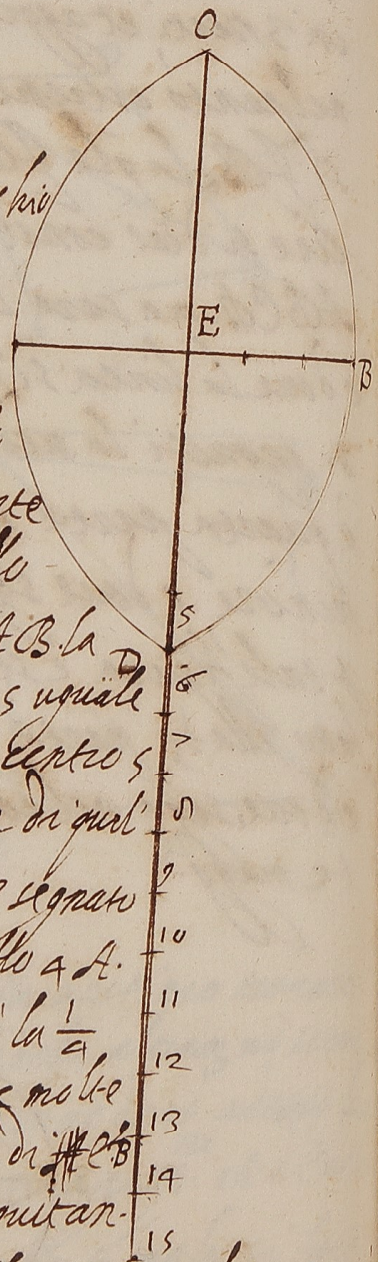 C
hio
E
B
rte
lo
5
AB. la
D
6
s uguale
7
centro s
di quel
8
9
segnato
10
llo 4 A.
11
la 1/4
12
molte
13
di B
14
quitan-
15